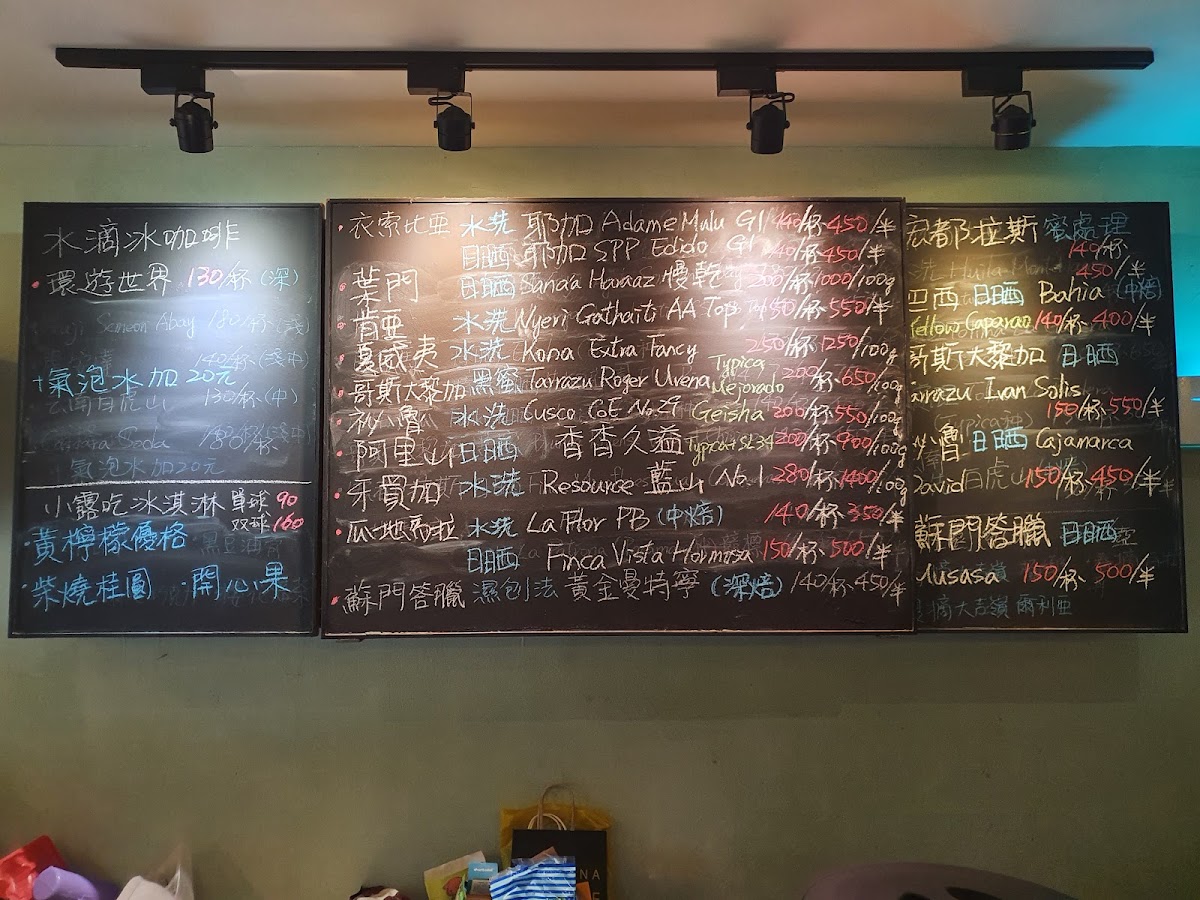 水滴冰咖啡
環遊世界 130/杯 (深)
Simeon Abay 180/杯 (淺)
140/杯 (淺中)
+氣泡水加20元
130/杯 (中)
Cascara Soda 180/杯
氣泡水加20元
小露吃冰淇淋 單球 90
双球 160
黃檸檬優格
柴燒桂圓 開心果
衣索比亞 水洗 耶加 Adame Mulu G1 140/杯 450/半
日晒 耶加 SPP Edido G1 140/杯 450/半
葉門 日晒 Sana'a Haraaz 慢乾 200/杯 1000/100g
肯亞 水洗 Nyeri Gathaiti AA Top 150/杯 550/半
夏威夷 水洗 Kona Extra Fancy 250/杯 1250/100g
哥斯大黎加 黑蜜 Tarrazu Roger Urena Typica Mejorado 200/杯 650/100g
祕魯 水洗 Cusco CoE No.29 Geisha 200/杯 550/100g
阿里山 日晒 香香久溢 Typica+SL34 200/杯 900/100g
牙買加 水洗 Resource 藍山 No.1 280/杯 1400/100g
瓜地馬拉 水洗 La Flor PB (中焙) 140/杯 350/半
日晒 Finca Vista Hermosa 150/杯 500/半
蘇門答臘 濕刨法 黃金曼特寧 (深焙) 140/杯 450/半
宏都拉斯 蜜處理
140/杯
450/半
巴西 日晒 Bahia (中焙)
Yellow Caparao 140/杯 400/半
哥斯大黎加 日晒
Tarrazu Ivan Solis
150/杯 550/半
祕魯 日晒 Cajamarca
David 150/杯 450/半
蘇門答臘 日晒
Musasa 150/杯 500/半
大吉嶺